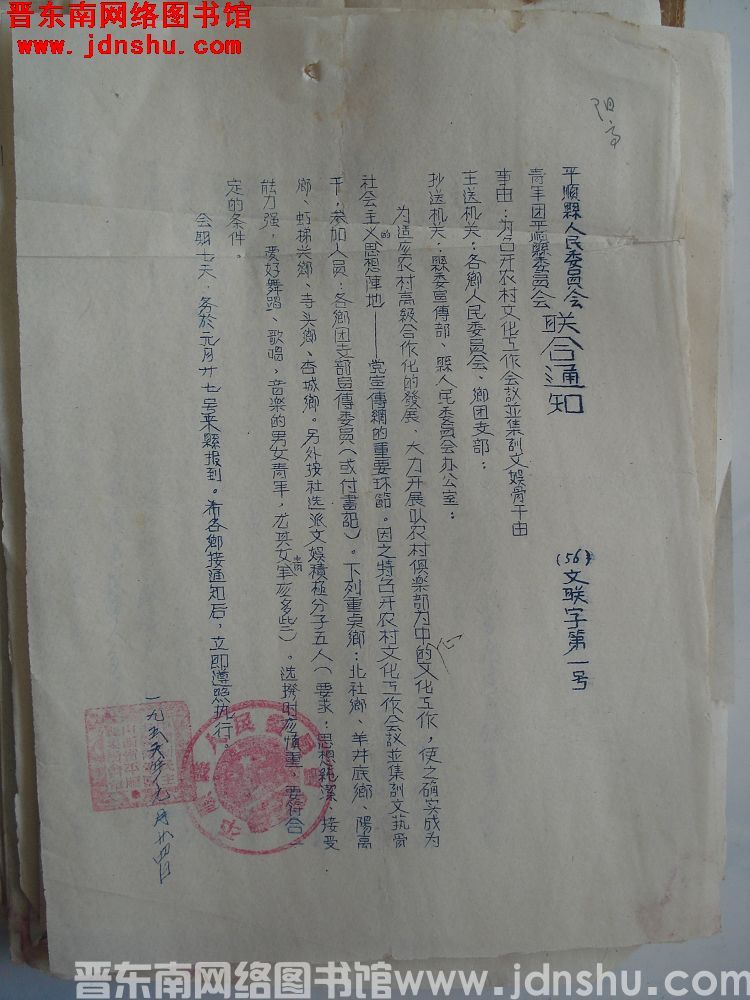 晋东南网络图书馆
www.jdnshu.com
阳高
平順縣人民委員会
青年团平順縣委員会
联合通知
(56)文联字第一号
事由：为召开农村文化工作会議並集訓文娱骨干由
主送机关：各鄉人民委員会、鄉团支部：
抄送机关：縣委宣傳部、縣人民委員会办公室：
为适应农村高級合作化的發展，大力开展以农村俱樂部为中心的文化工作，使之确实成为
社会主义的思想陣地——党宣傳網的重要环節。因之特召开农村文化工作会議並集訓文执骨
干，参加人員：各鄉团支部宣傳委員（或付書記）。下列重点鄉：北社鄉、羊井底鄉、陽高
鄉、虹梯关鄉、寺头鄉、杏城鄉。另外按社选派文娱積極分子五人（要求：思想純潔、接受
能力强，爱好舞蹈、歌唱，音樂的男女青年，尤其女青年应多些）。选擇时应慎重，要符合一
定的条件。
会期七天，务於元月廿七号来縣报到。希各鄉接通知后，立即遵照执行。
一九五六年元月廿四日
晋东南网络图书馆www.jdnshu.com